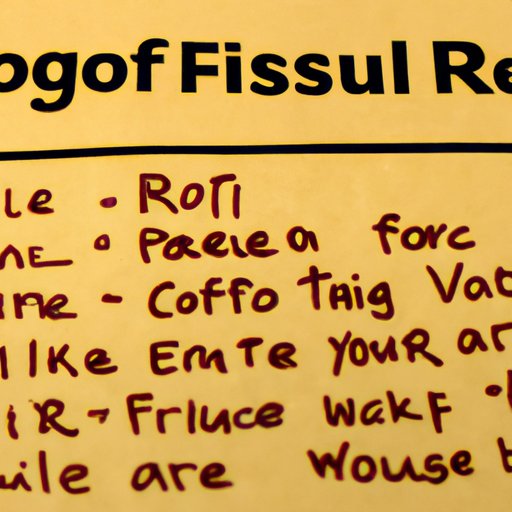 ogof Fissul Re
le - Roti
ne • Paeeea forc
ine - Coffo Thig Vat
like Emte your ar
ir - Frluce wakf
uile are wouse t